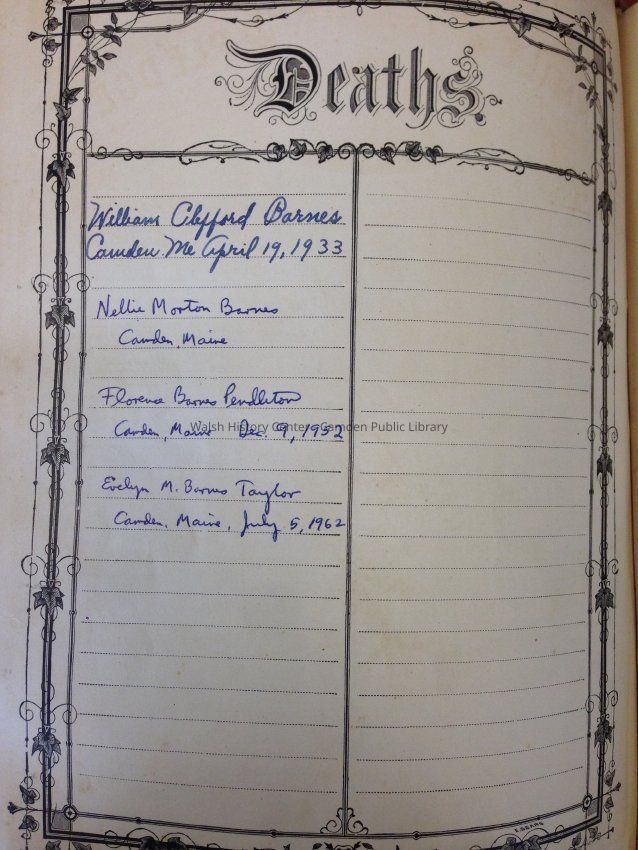 Deaths.
William Clifford Barnes
Camden Me April 19, 1933
Nellie Morton Barnes
Camden, Maine
Florence Barnes Pendleton
Camden, Maine Dec. 9, 1952
Walsh History Center, Camden Public Library
Evelyn M. Barnes Taylor
Camden, Maine, July 5, 1962